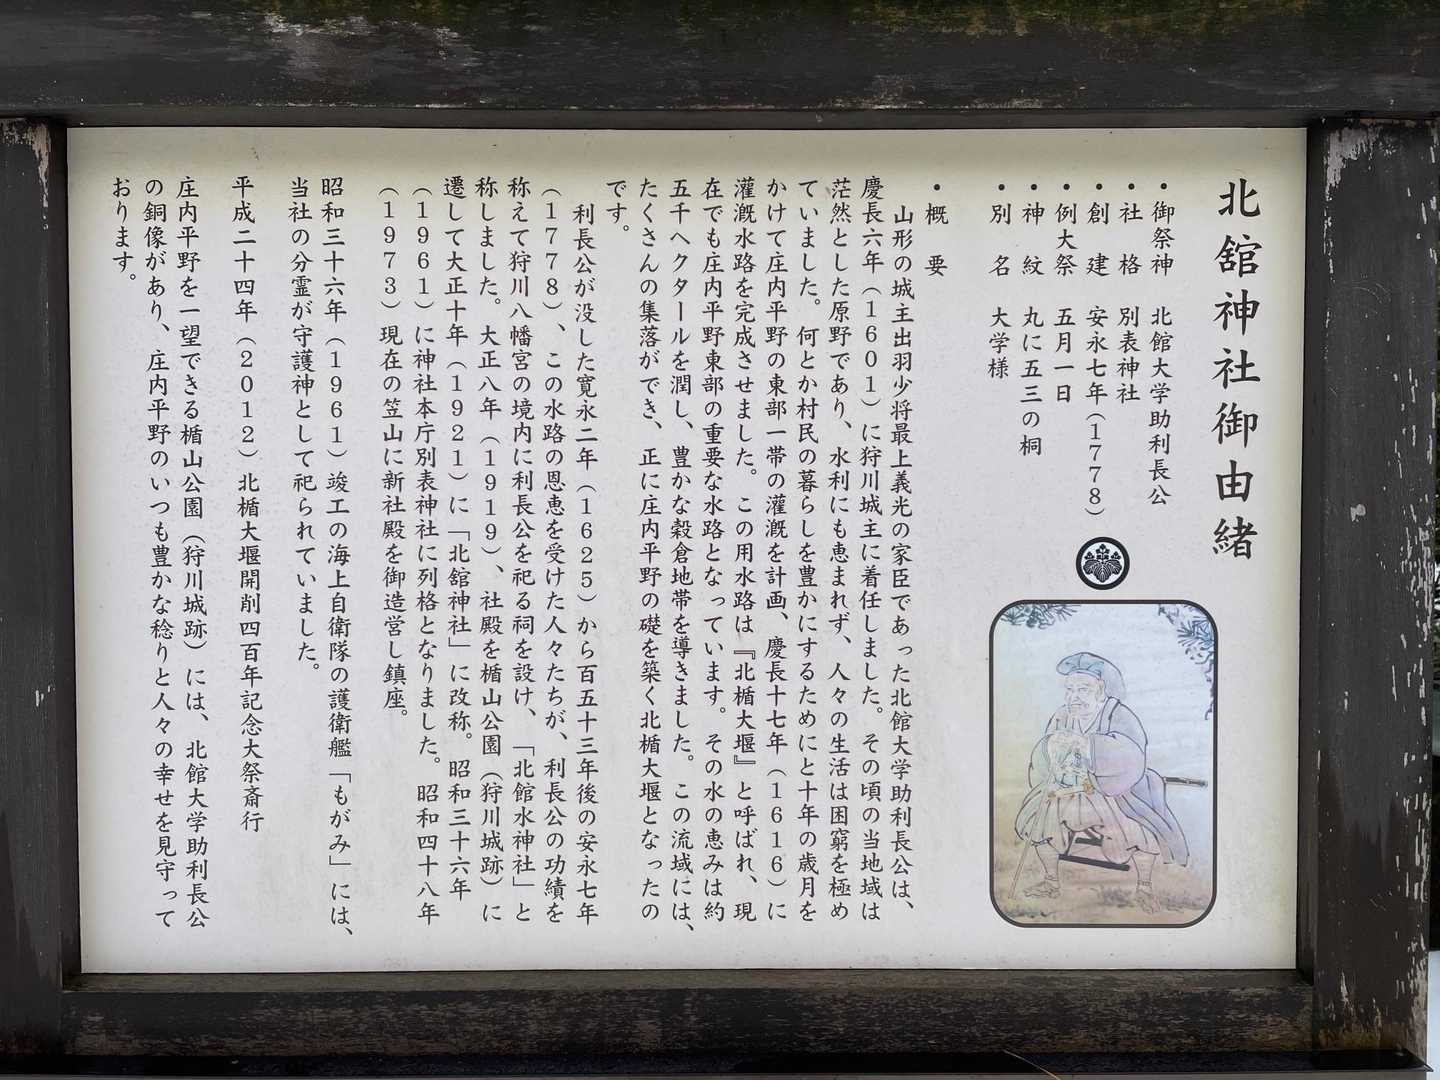 北舘神社御由緒
・御祭神　北館大学助利長公
・社　格　別表神社
・創　建　安永七年（1778）
・例大祭　五月一日
・神　紋　丸に五三の桐
・別　名　大学様
・概　要
　山形の城主出羽少将最上義光の家臣であった北館大学助利長公は、
慶長六年（1601）に狩川城主に着任しました。その頃の当地域は
茫然とした原野であり、水利にも恵まれず、人々の生活は困窮を極め
ていました。何とか村民の暮らしを豊かにするためにと十年の歳月を
かけて庄内平野の東部一帯の灌漑を計画、慶長十七年（1616）に
灌漑水路を完成させました。この用水路は『北楯大堰』と呼ばれ、現
在でも庄内平野東部の重要な水路となっています。その水の恵みは約
五千ヘクタールを潤し、豊かな穀倉地帯を導きました。この流域には、
たくさんの集落ができ、正に庄内平野の礎を築く北楯大堰となったの
です。
　利長公が没した寛永二年（1625）から百五十三年後の安永七年
（1778）、この水路の恩恵を受けた人々たちが、利長公の功績を
称えて狩川八幡宮の境内に利長公を祀る祠を設け、「北館水神社」と
称しました。大正八年（1919）、社殿を楯山公園（狩川城跡）に
遷して大正十年（1921）に「北舘神社」に改称。昭和三十六年
（1961）に神社本庁別表神社に列格となりました。昭和四十八年
（1973）現在の笠山に新社殿を御造営し鎮座。
昭和三十六年（1961）竣工の海上自衛隊の護衛艦「もがみ」には、
当社の分霊が守護神として祀られていました。
平成二十四年（2012）北楯大堰開削四百年記念大祭斎行
庄内平野を一望できる楯山公園（狩川城跡）には、北館大学助利長公
の銅像があり、庄内平野のいつも豊かな稔りと人々の幸せを見守って
おります。